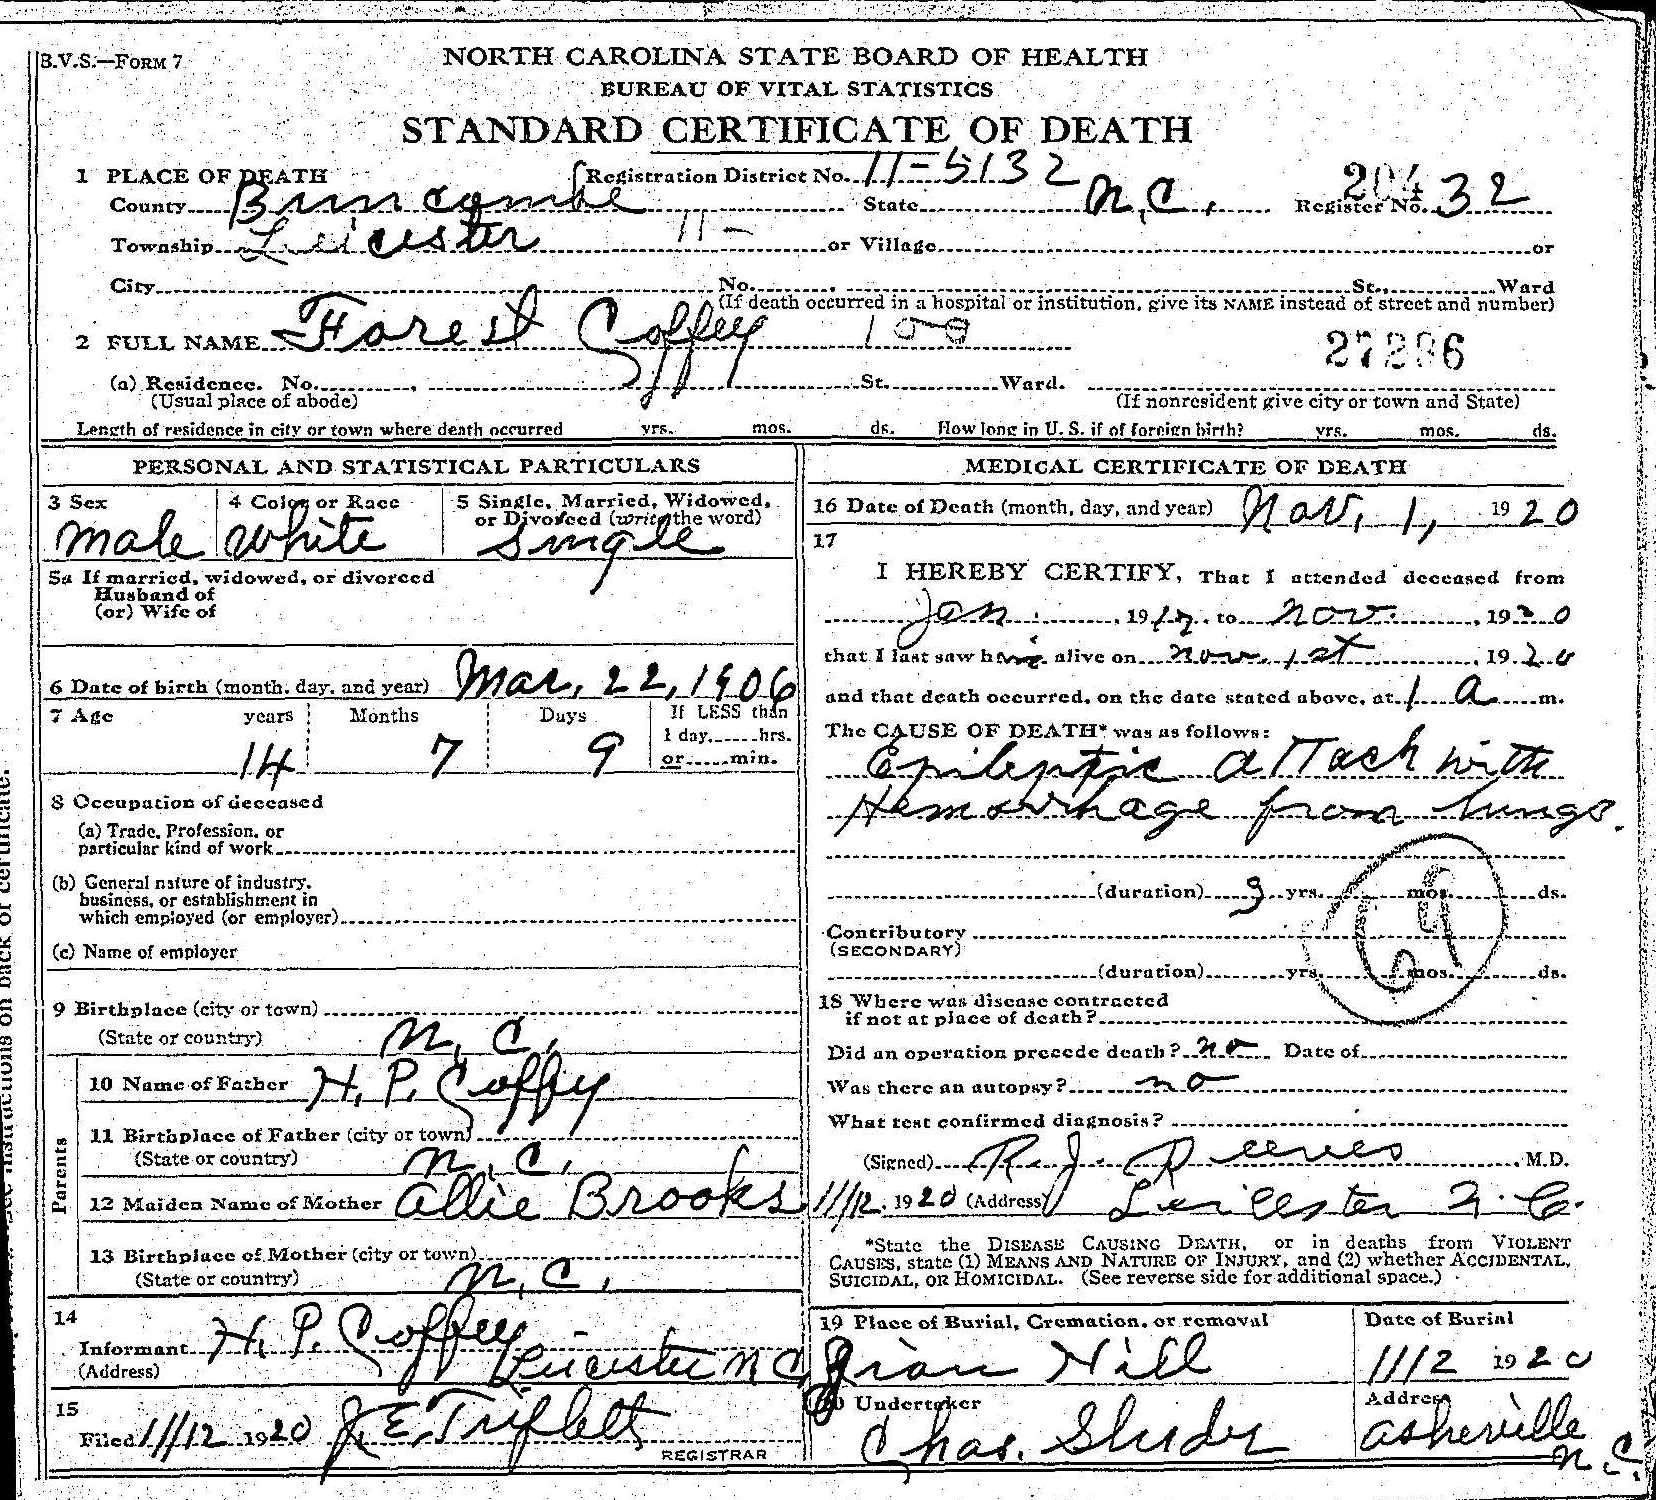 B.V.S.—FORM 7
NORTH CAROLINA STATE BOARD OF HEALTH
BUREAU OF VITAL STATISTICS
STANDARD CERTIFICATE OF DEATH
1 PLACE OF DEATH Registration District No. 11-5132 204
County Buncombe State N.C. Register No. 32
Township Leicester 11- or Village or
City No. St., Ward
(If death occurred in a hospital or institution, give its NAME instead of street and number)
2 FULL NAME Forest Coffey 100
(a) Residence. No. St. Ward.
(Usual place of abode) (If nonresident give city or town and State)
Length of residence in city or town where death occurred yrs. mos. ds. How long in U. S. if of foreign birth? yrs. mos. ds.
PERSONAL AND STATISTICAL PARTICULARS
3 Sex 4 Color or Race 5 Single, Married, Widowed,
or Divorced (write the word)
male white Single
5a If married, widowed, or divorced
Husband of
(or) Wife of
6 Date of birth (month, day, and year) Mar, 22, 1906
7 Age years Months Days If LESS than
1 day, hrs.
14 7 9 or min.
8 Occupation of deceased
(a) Trade, Profession, or
particular kind of work
(b) General nature of industry,
business, or establishment in
which employed (or employer)
(c) Name of employer
9 Birthplace (city or town)
(State or country) N. C.
Parents
10 Name of Father H. P. Coffey
11 Birthplace of Father (city or town)
(State or country) N. C.
12 Maiden Name of Mother Allie Brooks
13 Birthplace of Mother (city or town)
(State or country) N. C.
14
Informant H. P. Coffey
(Address) Leicester N C
15
Filed 11/12 1920 J. E. Triplett
REGISTRAR
MEDICAL CERTIFICATE OF DEATH
16 Date of Death (month, day, and year) Nov, 1, 1920
17
I HEREBY CERTIFY, That I attended deceased from
Jan. 1917, to Nov. 1920
that I last saw him alive on Nov. 1st, 1920
and that death occurred, on the date stated above, at 1 a m.
The CAUSE OF DEATH* was as follows:
Epileptic attack with
Hemorrhage from lungs.
(duration) 9 yrs. mos. ds.
Contributory
(SECONDARY)
(duration) yrs. mos. ds.
69
18 Where was disease contracted
if not at place of death?
Did an operation precede death? no Date of
Was there an autopsy? no
What test confirmed diagnosis?
(Signed) R. J. Reeves, M.D.
11/12, 1920 (Address) Leicester N. C.
*State the DISEASE CAUSING DEATH, or in deaths from VIOLENT
CAUSES, state (1) MEANS AND NATURE OF INJURY, and (2) whether ACCIDENTAL,
SUICIDAL, OR HOMICIDAL. (See reverse side for additional space.)
19 Place of Burial, Cremation, or removal Date of Burial
Hill 11/2 1920
20 Undertaker Address
Chas. Sluder Asheville
N.C.